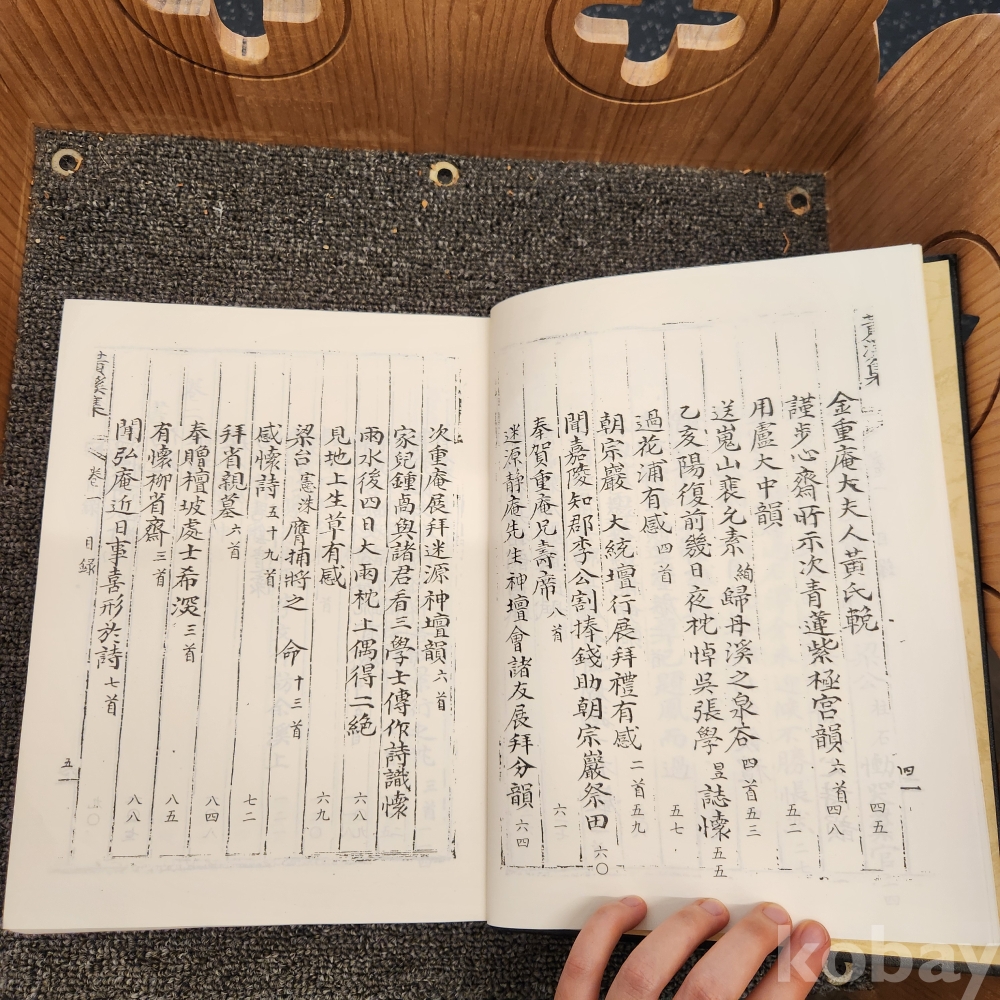 金重庵大夫人黃氏輓 四五
謹步心齋所示次青蓮紫極宮韻 六首 四八
用盧大中韻 五二
送嵬山裵允素 絢 歸丹溪之泉谷 四首 五三
乙亥陽復前幾日夜枕悼吳張學 昱 誌懷 五五
過花浦有感 四首 五七
朝宗巖 大統壇行展拜禮有感 二首 五九
聞嘉陵知郡李公割捧錢助朝宗巖祭田 六〇
奉賀重庵兄壽席 八首 六一
迷源靜庵先生神壇會諸友展拜分韻 六四
四一
次重庵展拜迷源神壇韻 六首
家兒鍾卨與諸君看三學士傳作詩識懷
雨水後四日大雨枕上偶得二絶 六八
見地上生草有感 六九
梁台 憲洙 膺捕將之 命 十三首
感懷詩 五十九首
拜省親墓 六首 七二
奉贈檀坡處士希深 三首 八四
有懷柳省齋 三首 八五
聞弘庵近日事喜形於詩 七首 八八
卷一 目録
五
kobay